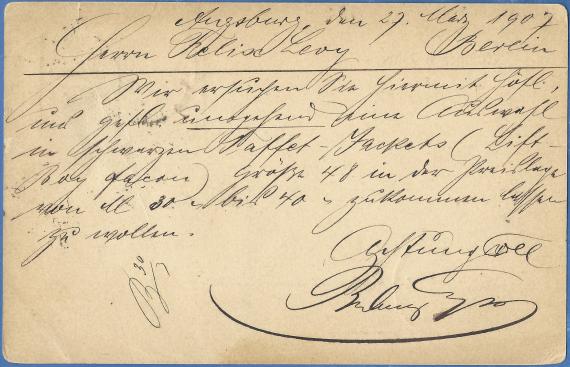 Augsburg, den 27. März 1907
Herrn Felix Levy Berlin
Wir ersuchen Sie hiermit höfl.,
uns gefl. umgehend eine Auswahl
in schwarzen Taffet-Jackets (Lift-
Boy façon) Größe 48 in der Preislage
von M 30 „ bis 40 „ zukommen lassen
zu wollen.
Achtungsvoll
30